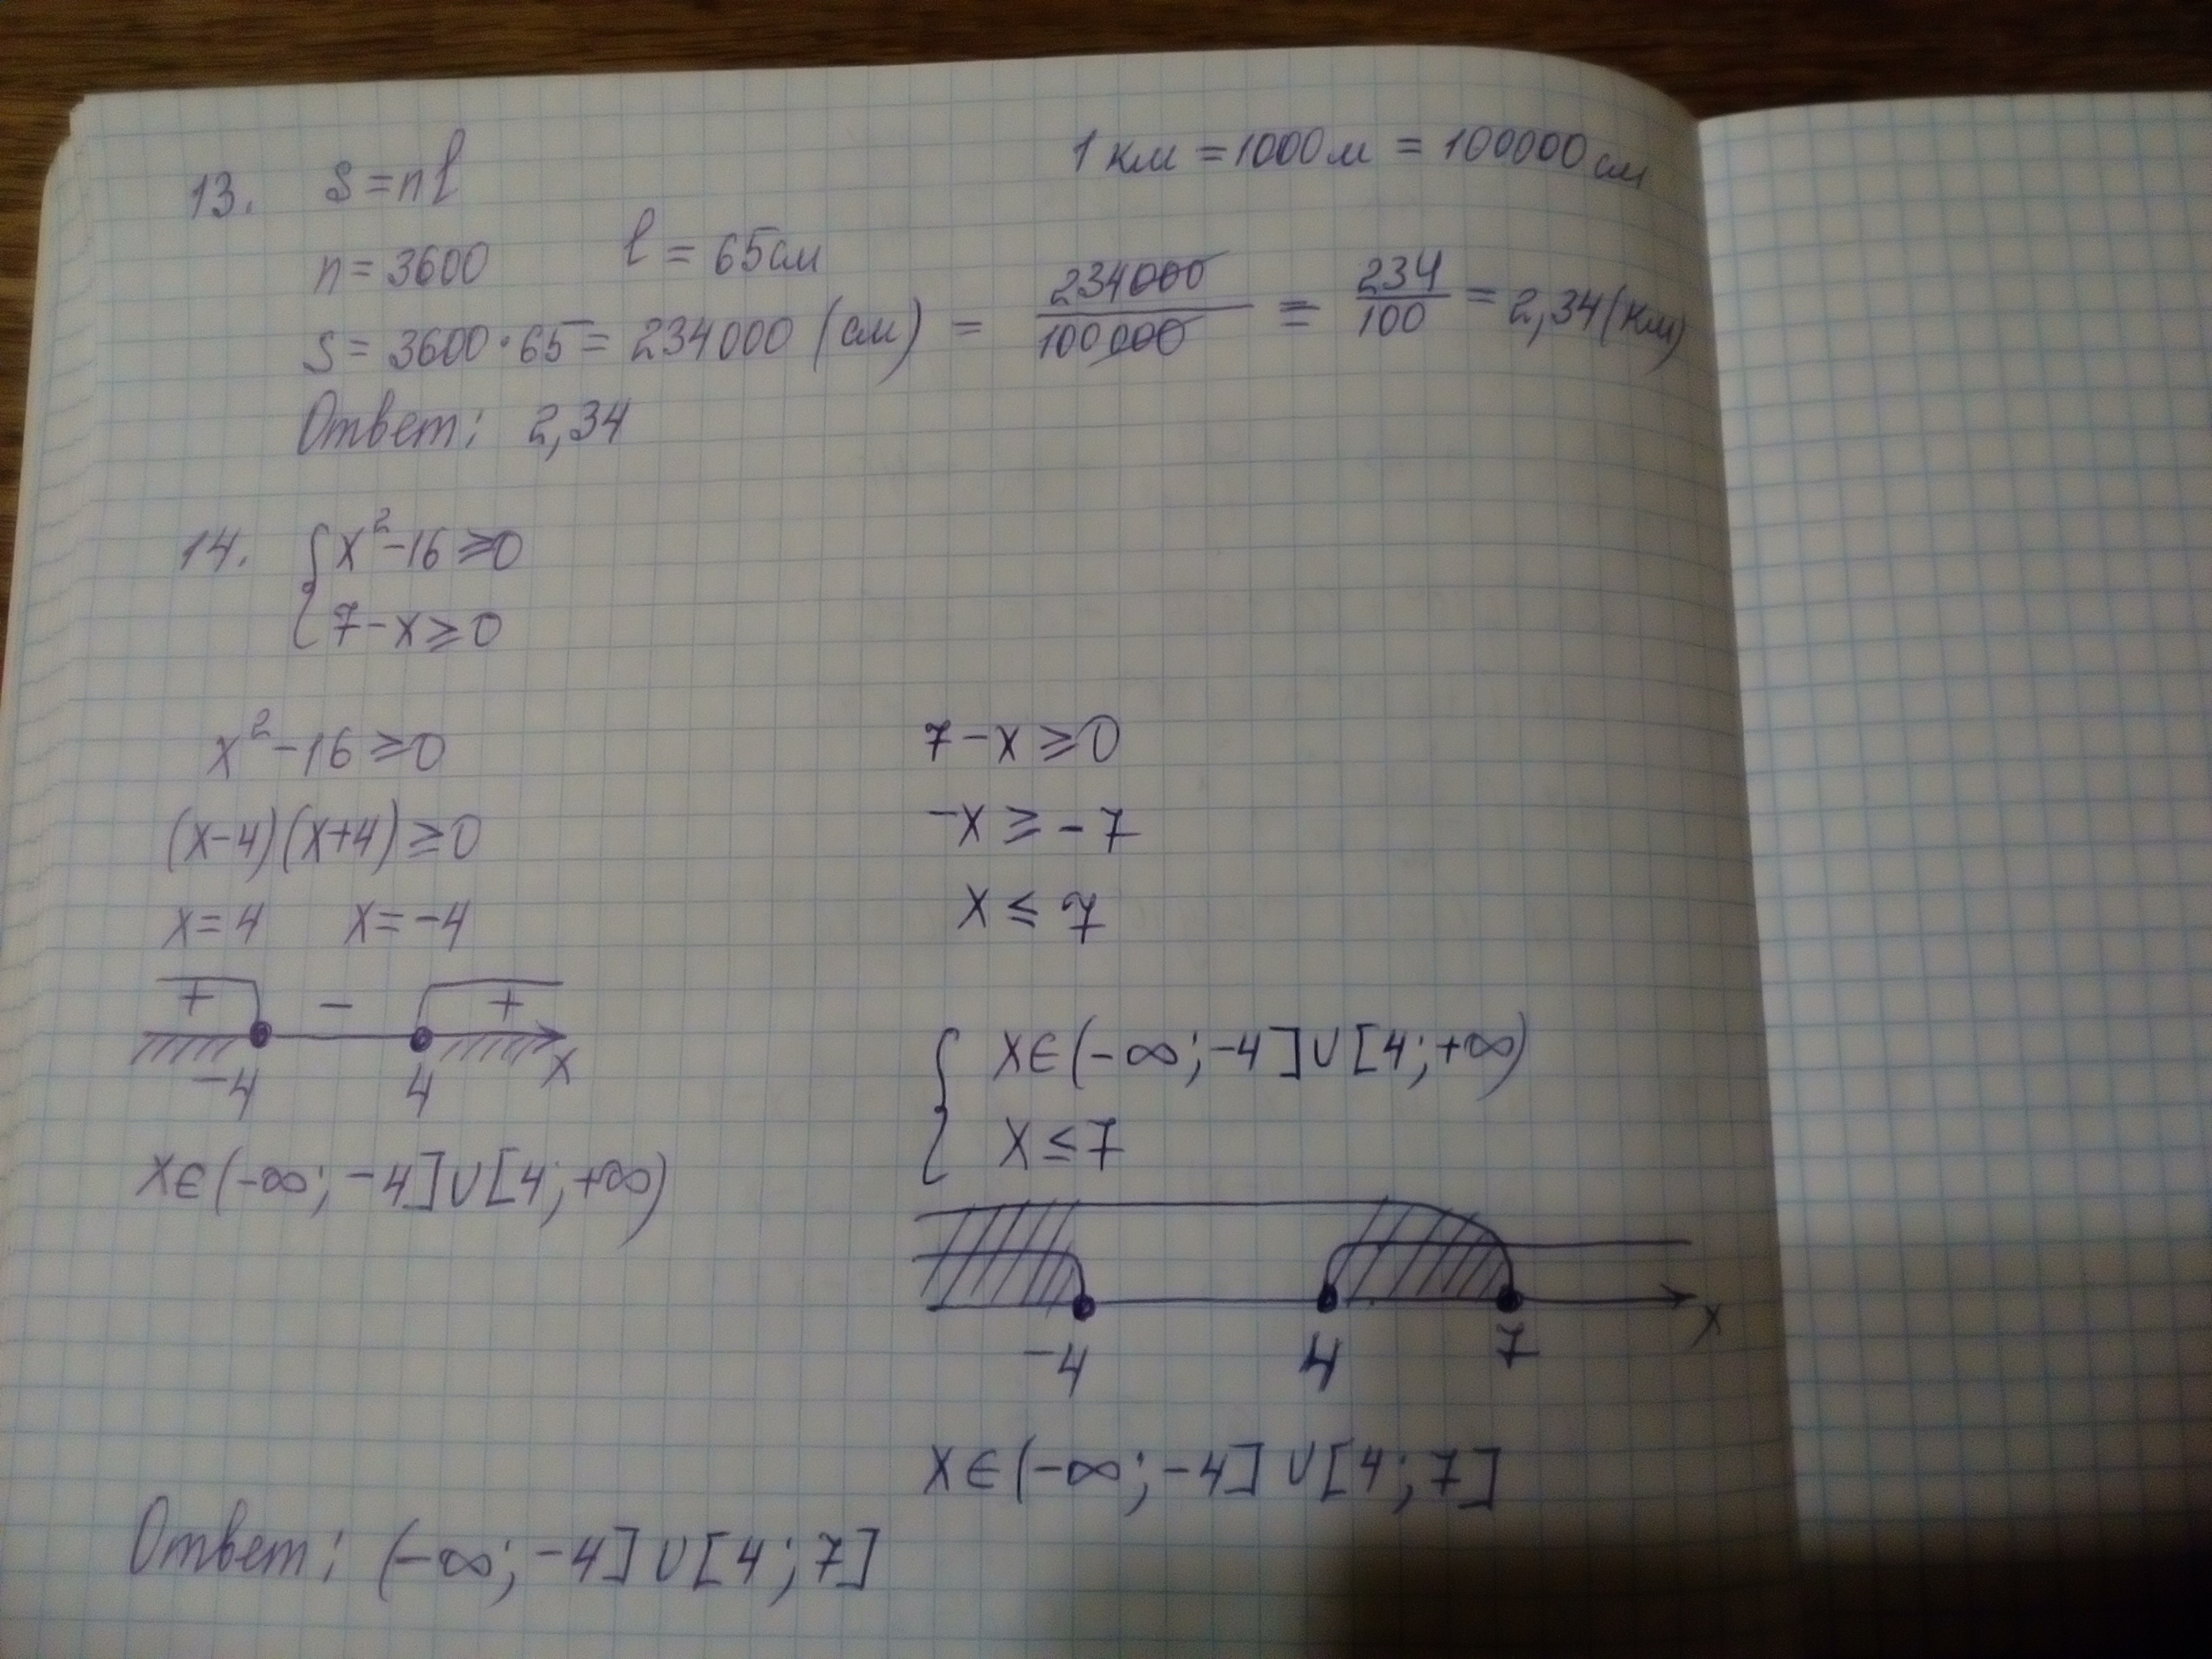 13. S = nl 1 км = 1000 м = 100000 см
n = 3600 l = 65 см
S = 3600 · 65 = 234000 (см) = 234000/100000 = 234/100 = 2,34 (км)
Ответ: 2,34
14. { x² - 16 ≥ 0
7 - x ≥ 0
x² - 16 ≥ 0
(x-4)(x+4) ≥ 0
x = 4 x = -4
+ - +
-4 4 x
x ∈ (-∞; -4] ∪ [4; +∞)
7 - x ≥ 0
-x ≥ -7
x ≤ 7
{ x ∈ (-∞; -4] ∪ [4; +∞)
x ≤ 7
-4 4 7 x
x ∈ (-∞; -4] ∪ [4; 7]
Ответ: (-∞; -4] ∪ [4; 7]